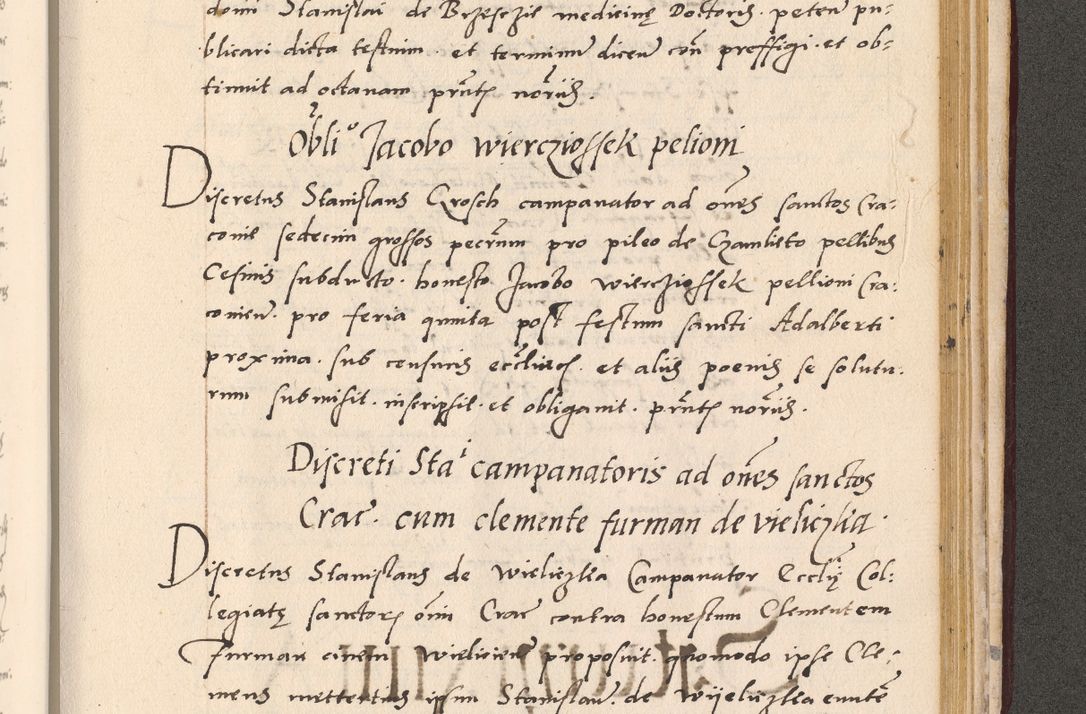 domi Stanislai de Brzesczie medicinę Doctoris. peten pu-
blicari dicta testium. et terminum dicen con preffigi. et ob-
tinuit ad octavam prntes noriis.
Obligo Jacobo wiercziossek pelioni
Discretus Stanislaus Grosch campanator ad omes sanctos Cra-
coviē sedecim grossos pecrum pro pileo de Czambleto pellibus
Cesinis subducto. honesto Jacobo wiercziossek pellioni Cra-
covien. pro feria quinta post festum sancti Adalberti
proxima. sub censuris ecclicis. et aliis poenis se solutu-
rum submisit. inscripsit. et obligavit. prntes noriis.
Discreti Stai campanatoris ad omes sanctos
Crac. cum clemente furman de vieliczlia.
Discretus Stanislaus de Wieliczlia Campanator Eccliȩ Col-
legiatę sanctorum oim Crac contra honestum Clementem
Furman civem Wielicien proposuit. quomodo ipse Cle-
mens mettertius ipsum Stanislaum. de Wijeliczlia eunte